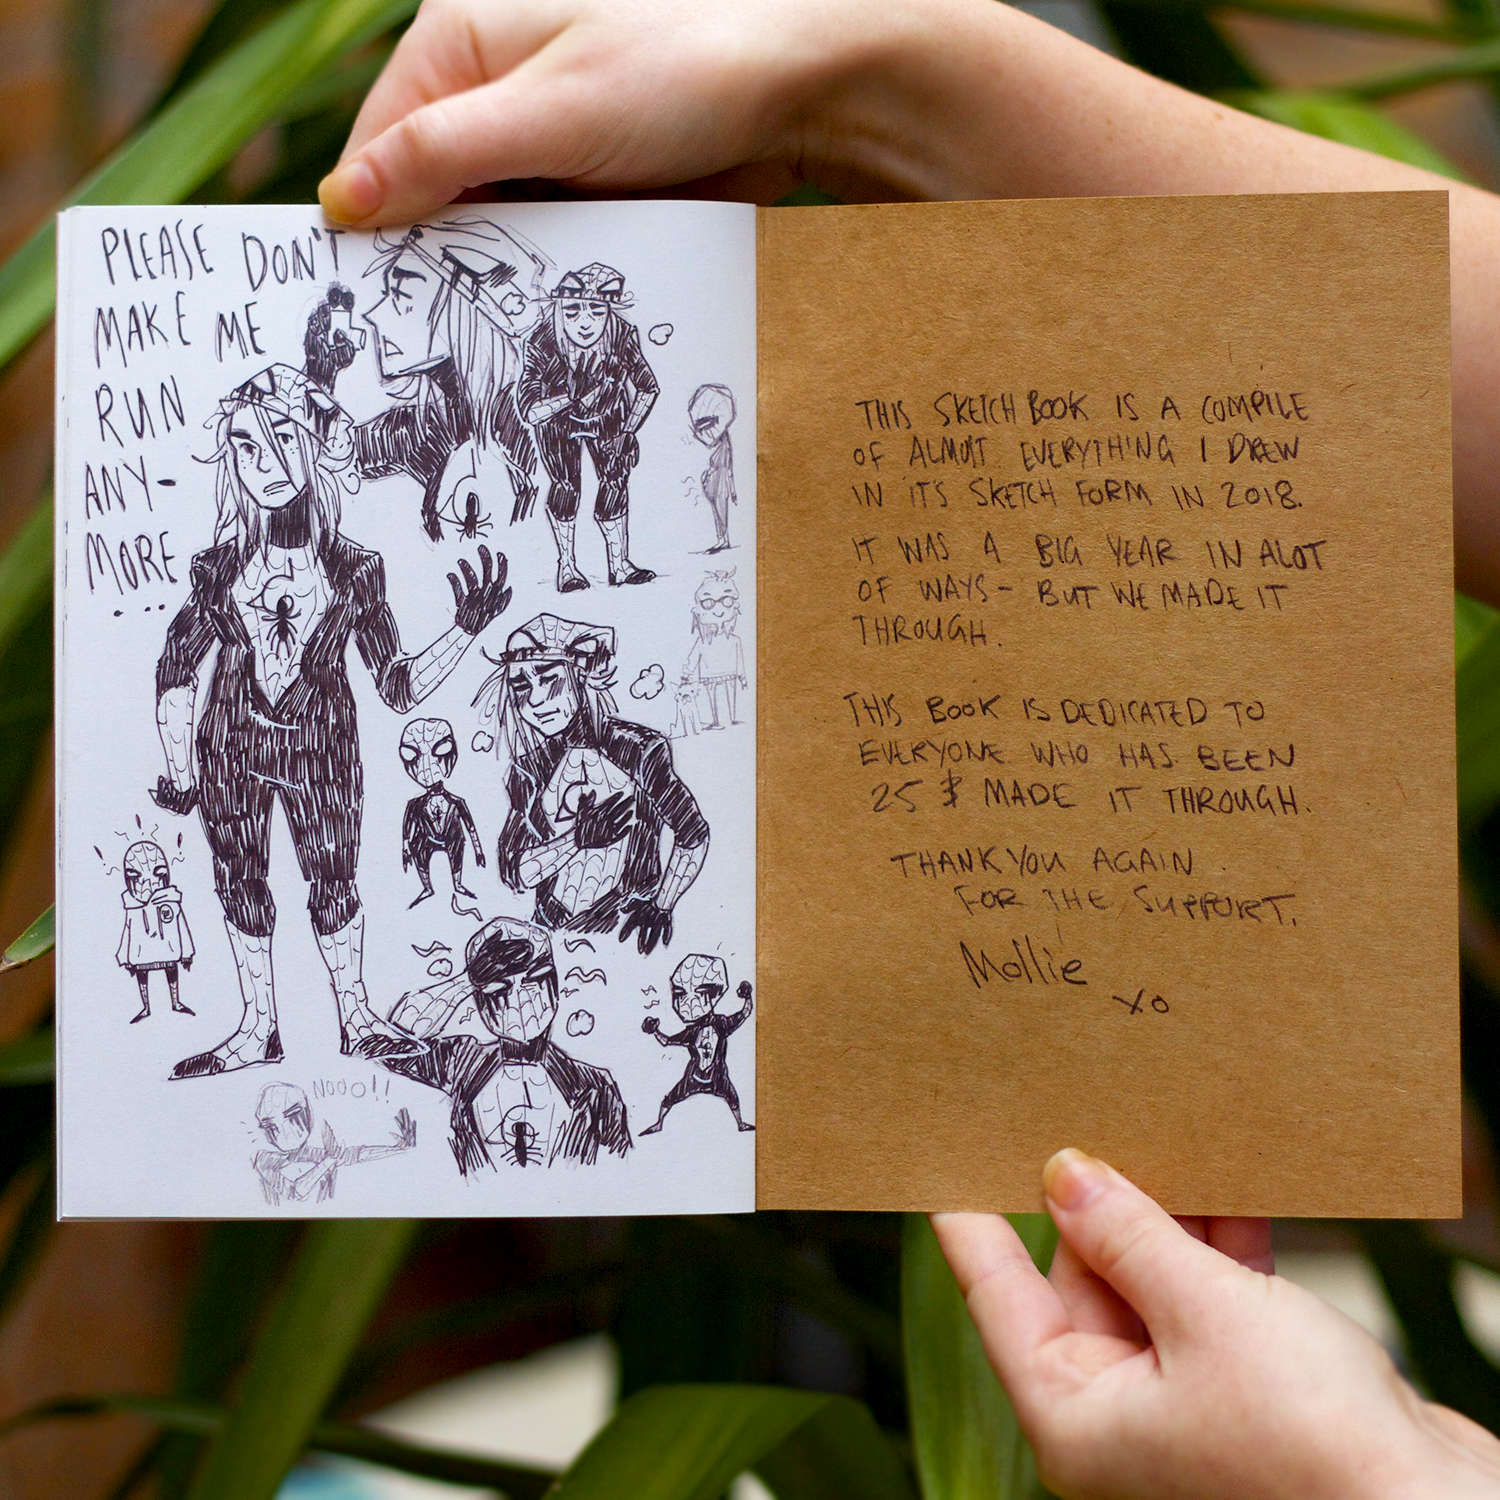 PLEASE DON'T
MAKE ME
RUN
ANY-
MORE
...
NOOO!!
THIS SKETCHBOOK IS A COMPILE
OF ALMOST EVERYTHING I DREW
IN IT'S SKETCH FORM IN 2018.
IT WAS A BIG YEAR IN ALOT
OF WAYS- BUT WE MADE IT
THROUGH.
THIS BOOK IS DEDICATED TO
EVERYONE WHO HAS BEEN
25 $ MADE IT THROUGH.
THANK YOU AGAIN
FOR THE SUPPORT.
Mollie
xo